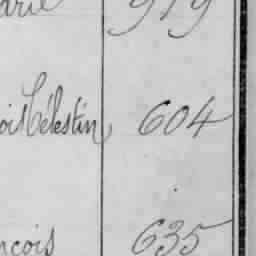 arie 919
ois Célestin 604
nçois 635